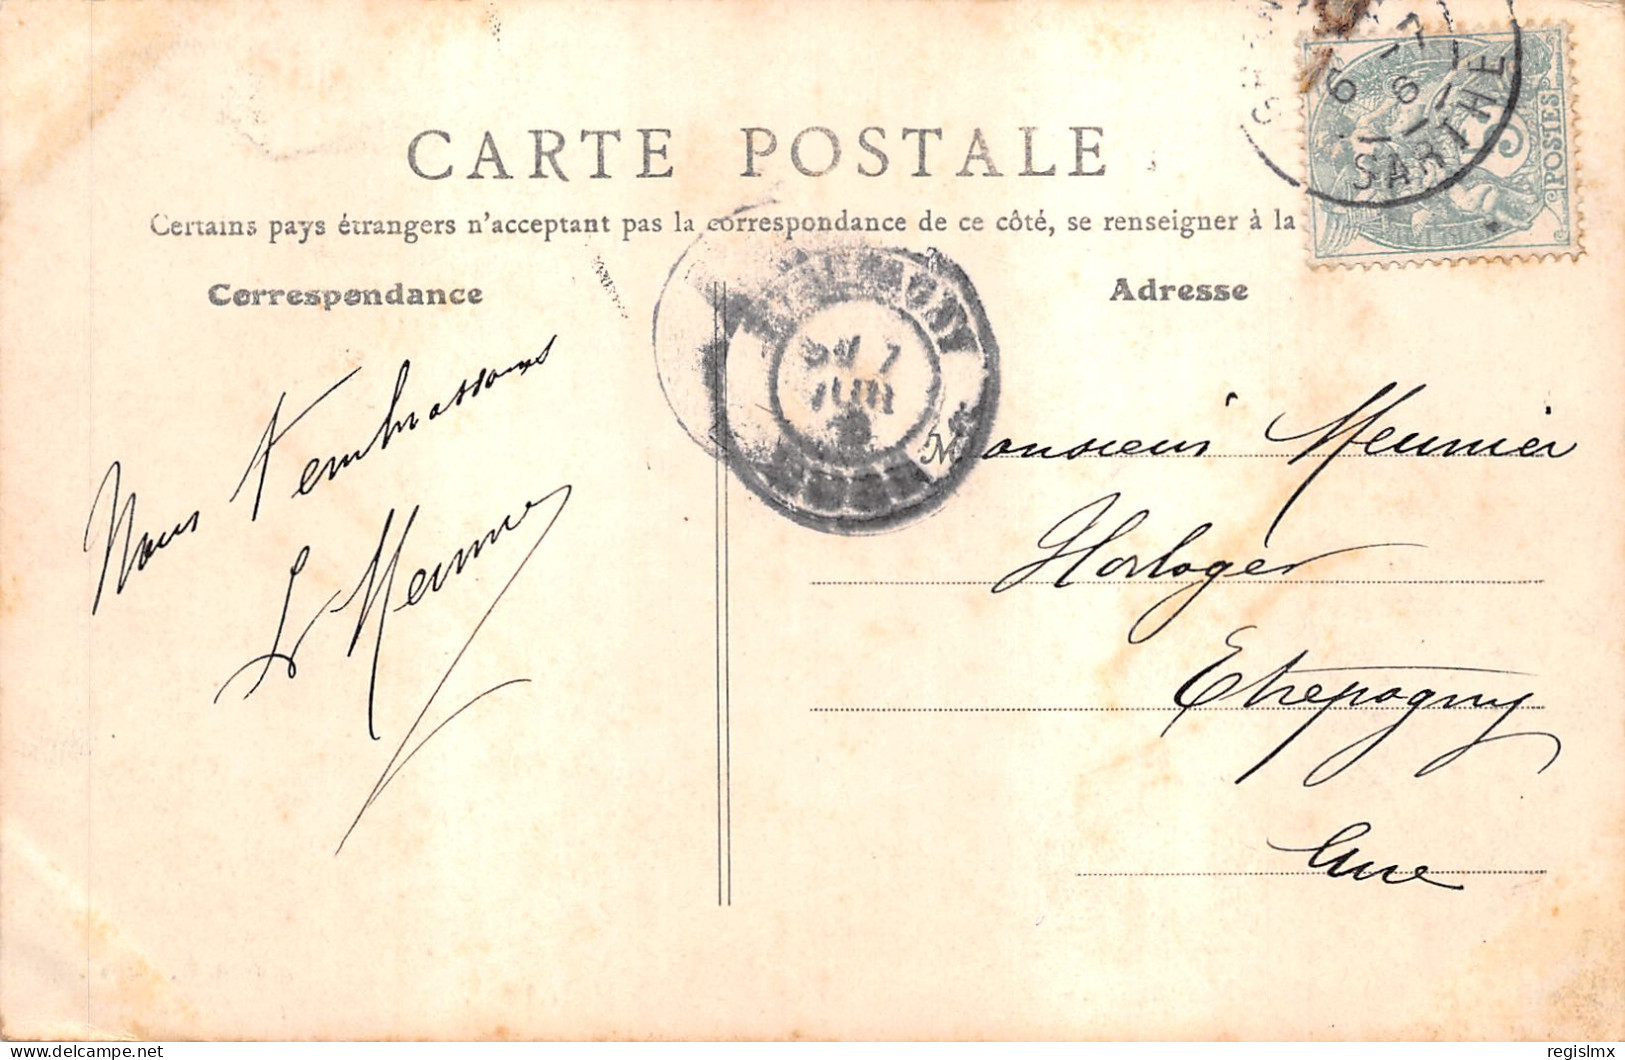 CARTE POSTALE
Certains pays étrangers n'acceptant pas la correspondance de ce côté, se renseigner à la
Correspondance
Adresse
Nous t'embrassons
L Meunier
Monsieur Meunier
Horloger
Etrepagny
Eure
SARTHE
5
POSTES
7
JUIN
regislmx